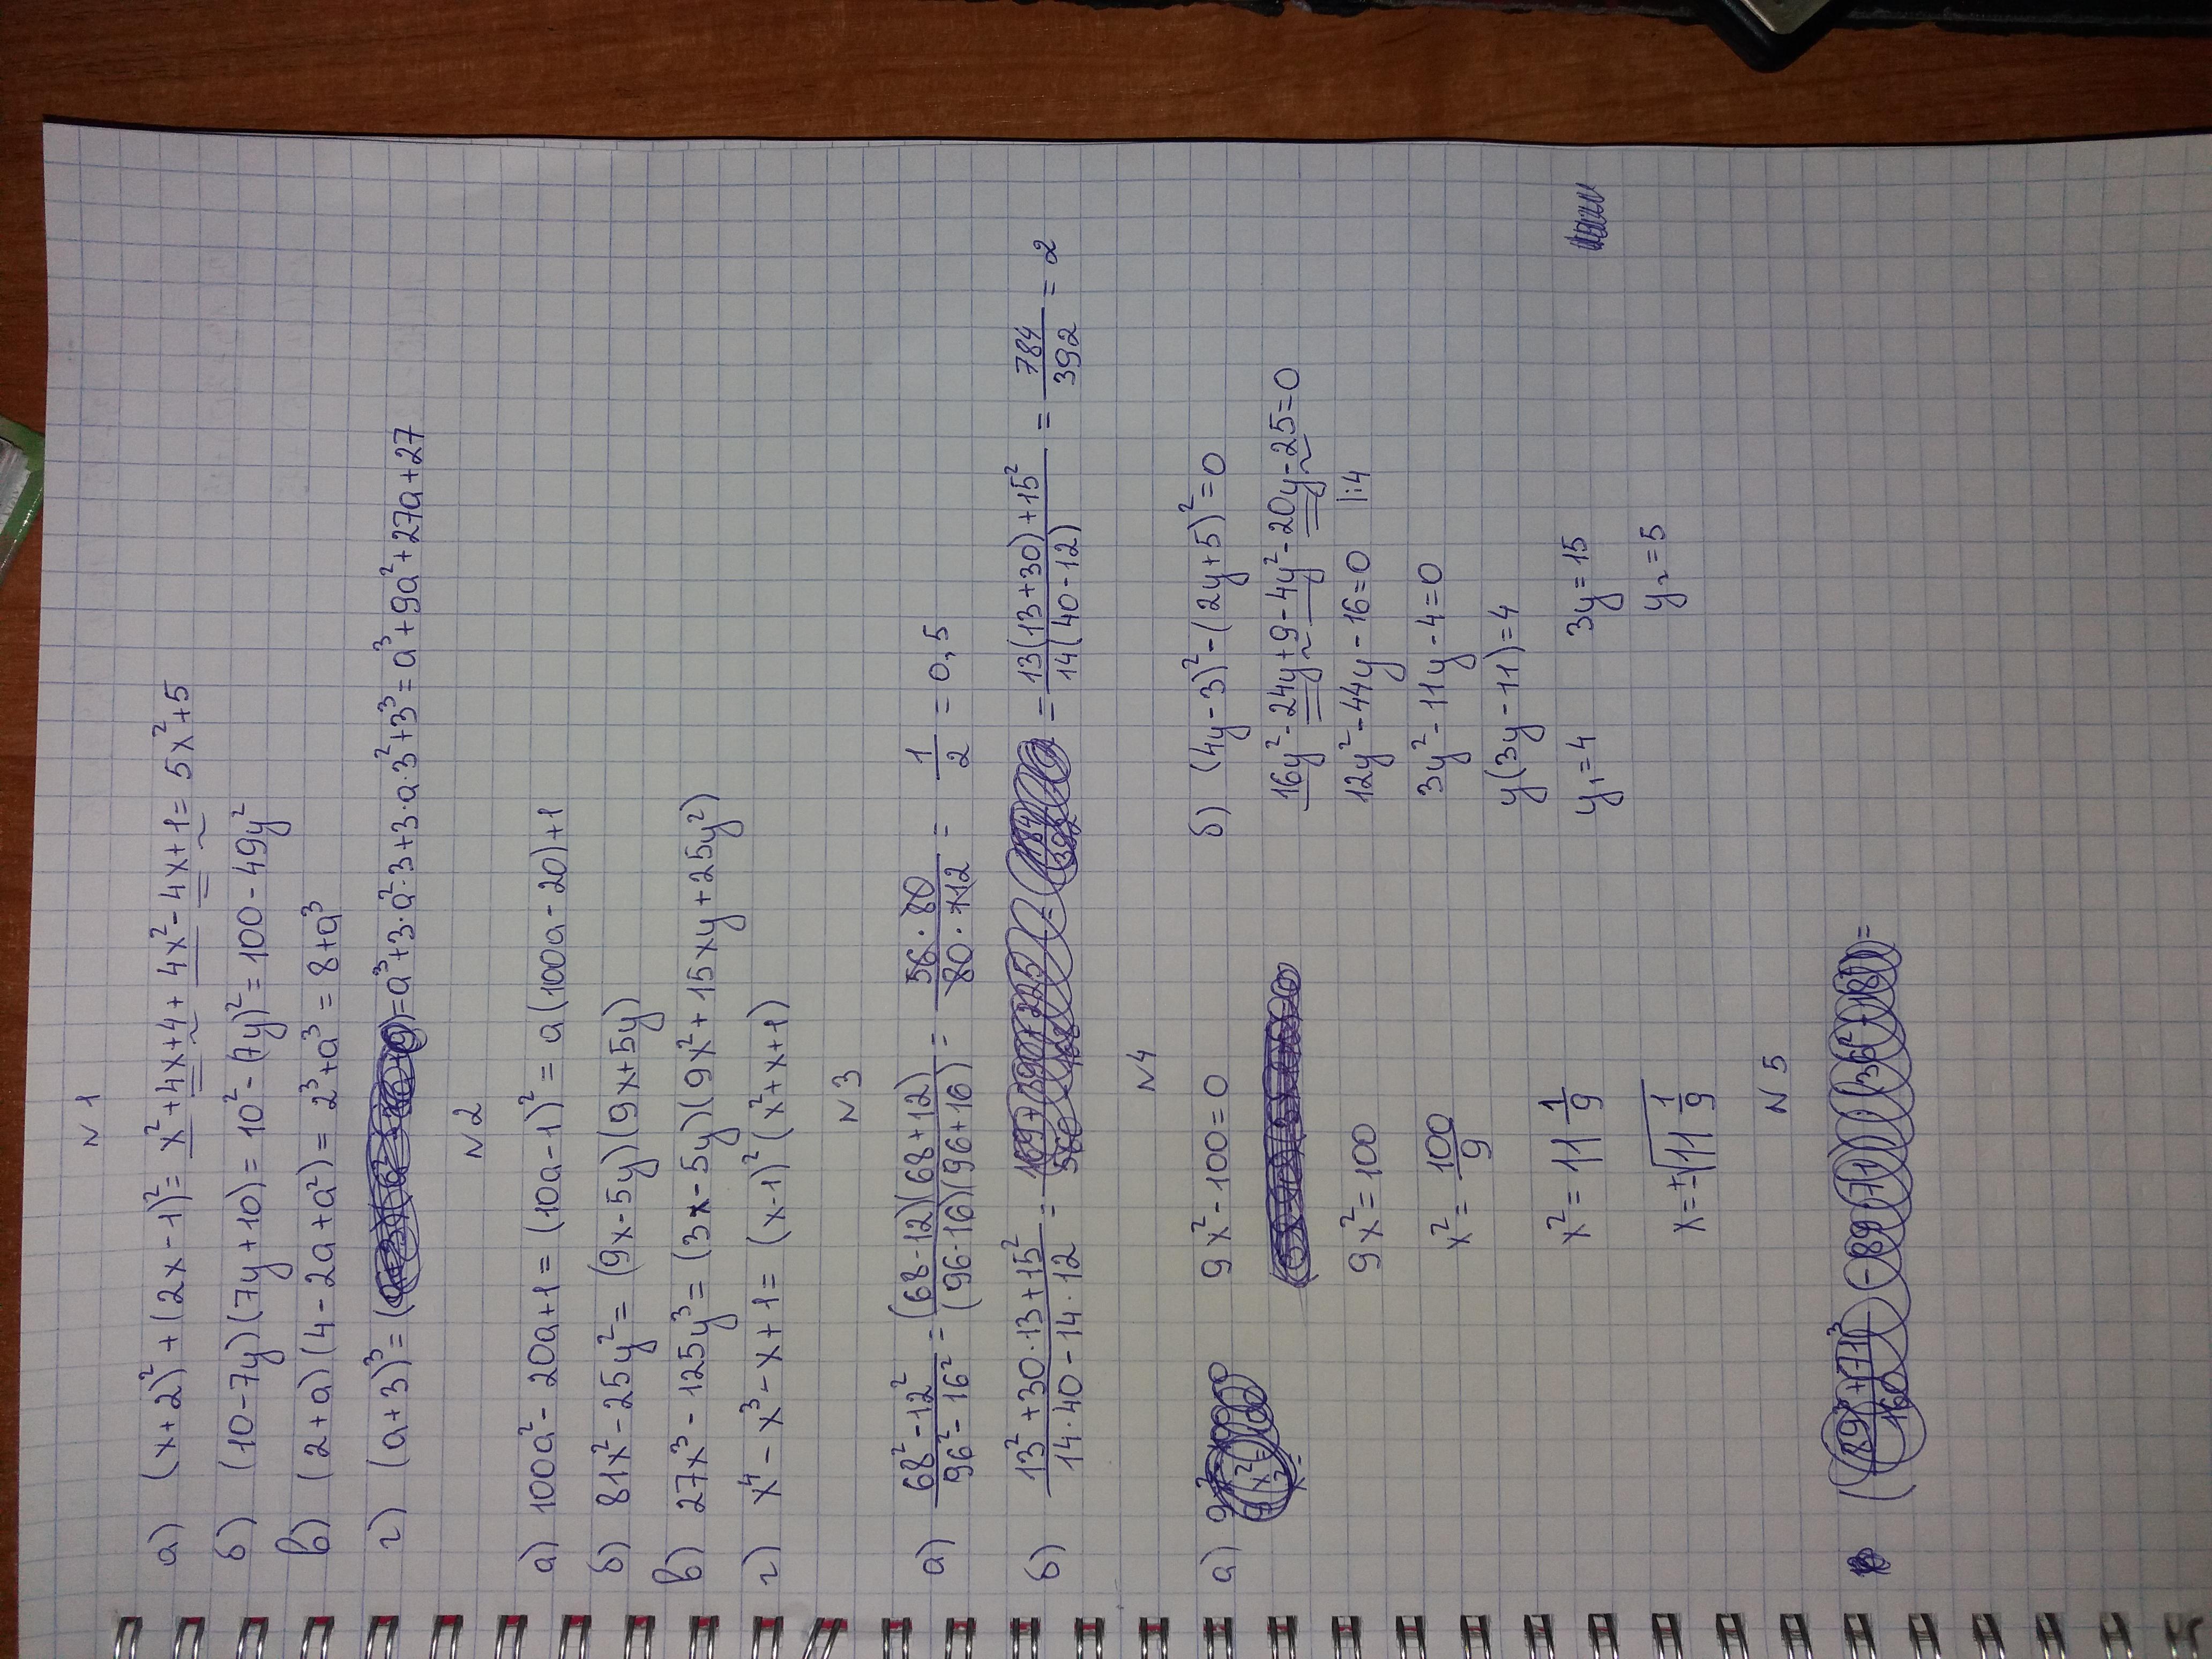 N 1
а) (x+2)² + (2x-1)² = x²+4x+4+4x²-4x+1 = 5x²+5
б) (10-7y)(7y+10) = 10²-(7y)² = 100-49y²
в) (2+a)(4-2a+a²) = 2³+a³ = 8+a³
г) (a+3)³ = = a³+3·a²·3+3·a·3²+3³ = a³+9a²+27a+27
N 2
а) 100a²-20a+1 = (10a-1)² = a(100a-20)+1
б) 81x²-25y² = (9x-5y)(9x+5y)
в) 27x³-125y³ = (3x-5y)(9x²+15xy+25y²)
г) x⁴-x³-x+1 = (x-1)²(x²+x+1)
N 3
а) \frac{68²-12²}{96²-16²} = \frac{(68-12)(68+12)}{(96-16)(96+16)} = \frac{56·80}{80·112} = \frac{1}{2} = 0,5
б) \frac{13²+30·13+15²}{14·40-14·12} = = \frac{13(13+30)+15²}{14(40-12)} = \frac{784}{392} = 2
N 4
а) 9x²-100=0
9x²=100
x²=\frac{100}{9}
x²=11\frac{1}{9}
x=±\sqrt{11\frac{1}{9}}
б) (4y-3)²-(2y+5)²=0
16y²-24y+9-4y²-20y-25=0
12y²-44y-16=0 |:4
3y²-11y-4=0
y(3y-11)=4
y₁=4 3y=15
y₂=5
N 5